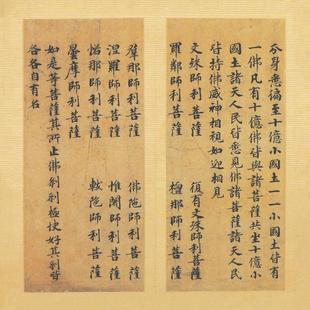 分身悉遍至十億小國土一一小國土皆有
一佛凡有十億佛皆與諸菩薩共坐十億小
國土諸天人民皆悉見佛諸菩薩諸天人民
皆持佛威神相見如迎相見
文殊師利菩薩　復有文殊師利菩薩
羅鄰師利菩薩　檀那師利菩薩
摩那師利菩薩　佛陀師利菩薩
涅羅師利菩薩　惟闍師利菩薩
師利菩薩　師利菩薩
曇摩師利菩薩
如是等菩薩其所止佛剎剎極快好其剎皆
各各自有名